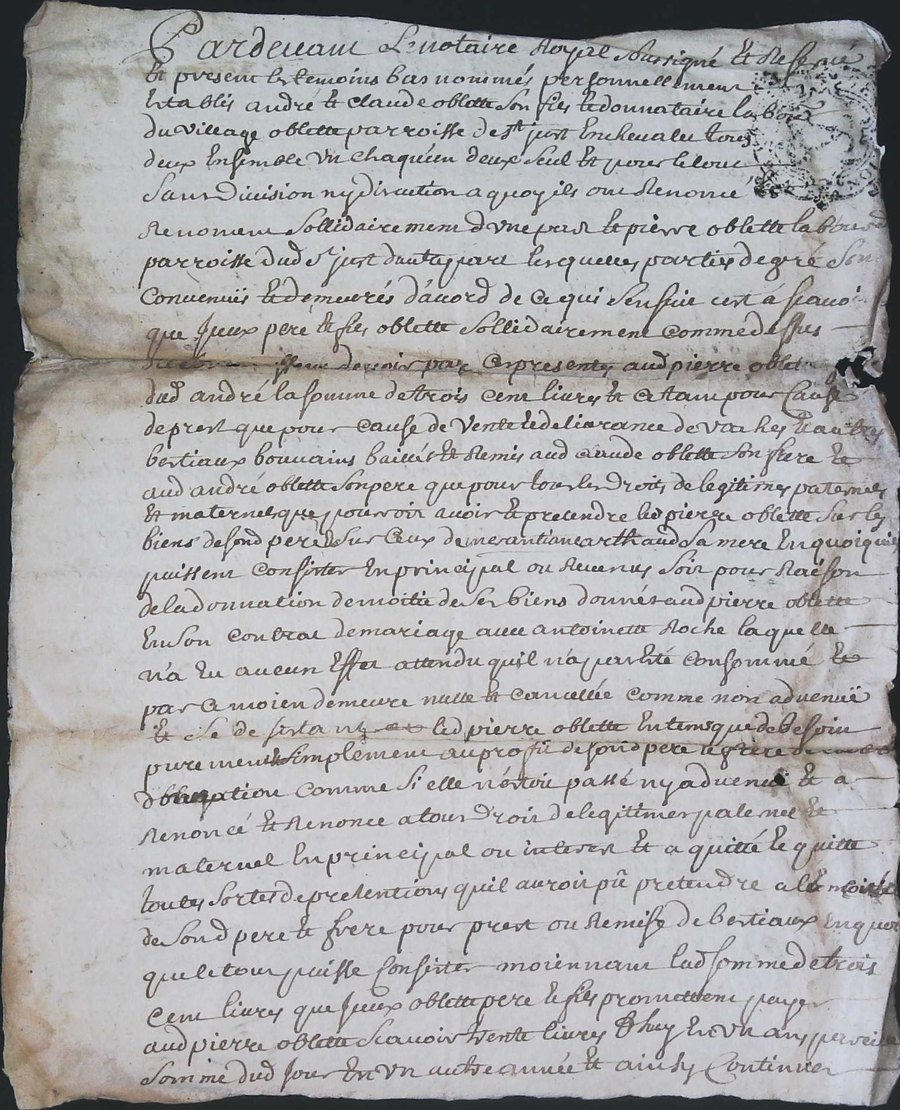 Pardevant Le notaire Royal Soussigné Et Reservé
Et present Les temoins bas nommés personnellement
Establis andré Et Claude oblette Son fils Et donnataire labour
du village oblette parroisse de st just En chevalet tous
deux Ensemble un chaqu'en deux Seul Et pour le tout
Sans division ny direction a quoy ils ont Renoncé
Renoncent Sollidairement d'une part Et pierre oblette
parroisse dud st just d'autre part Lesquelles parties de gré Son
Convenüs Et demeurés d'acord de Ce qui Sensuit c'est a scavoir
que Jceux pere Et fils oblette Sollidairement Comme dessus
devoir par Ces presentes aud pierre oblette
dud andré la somme de trois Cent livres Et Ce tant pour Cause
de prest que pour Cause de Vente Et delivrance de vaches Et autres
bestiaux bouvains baillés Et Remis aud Claude oblette Son frere Et
aud andré oblette Son pere que pour tous les Droits de legitimes paternels
Et maternels que pouvoit avoir Et pretendre led pierre oblette Sur les
biens de Sond pere Et Sur Ceux de Sa mere En quoi qu'il
puissent Consister En principal ou Revenus Soit pour Raison
de la donnation de moitié de Ses biens donnés aud pierre oblette
En Son Contrat de mariage avec antoinette Roche laquelle
n'a Eu aucun Effet attendu quil n'a par Esté Consommé Et
par Ce moien demeure nulle Et Cancellée Comme non advenuë
Et led pierre oblette En tems que de Besoin
purement Et Simplement au profit de Sond pere Et frere
Comme Si Elle n'estoit passé ny advenue Et a
Renoncé Et Renonce a tout Droit de legitimes paternel Et
maternel En principal ou interest Et a quitté Et quitte
toutes Sortes de pretentions quil auroit pû pretendre
de Sond pere Et frere pour prest ou Remise de bestiaux En quoi
que le tout puisse Consister moiennant lad Somme de trois
Cent livres que Jceux oblette pere Et fils promettent payer
aud pierre oblette Scavoir trente livres D'huy En un an pareille
Somme dud Jour En un autre année Et ainsy Continuer